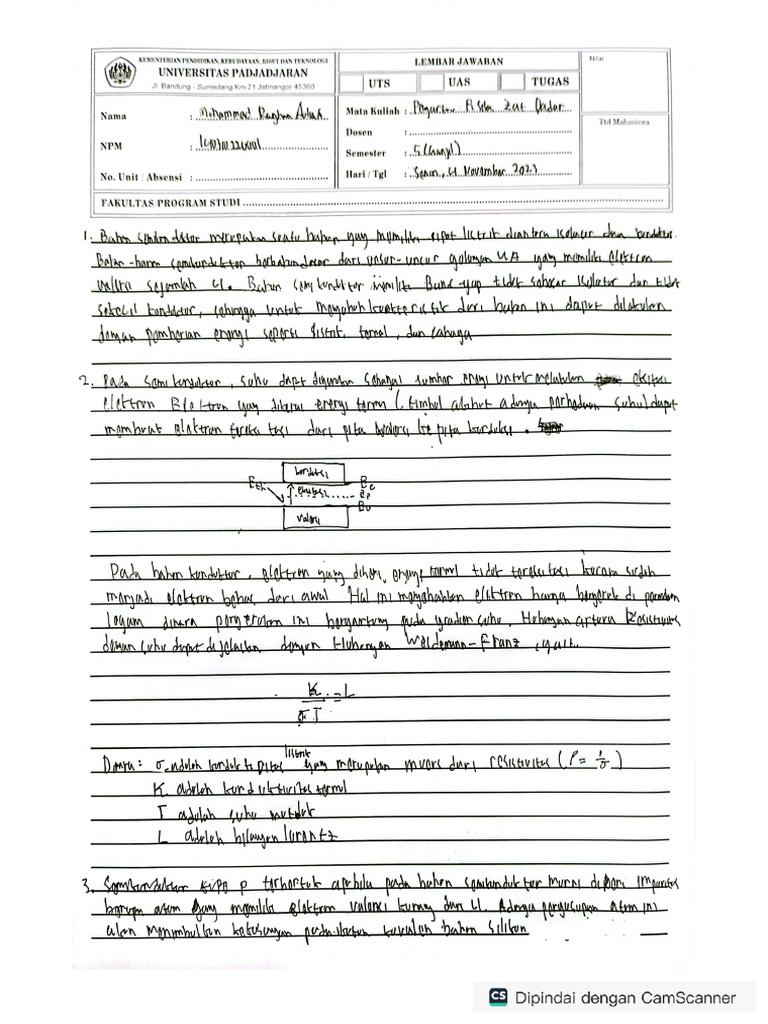 KEMENTERIAN PENDIDIKAN, KEBUDAYAAN, RISET DAN TEKNOLOGI
UNIVERSITAS PADJADJARAN
Jl. Bandung - Sumedang Km 21 Jatinangor 45360
LEMBAR JAWABAN
UTS UAS TUGAS
Nilai
Nama : Mohammad
Mata Kuliah : Zat Padat
Ttd Mahasiswa
NPM :
Dosen :
Semester : 5 (Ganjil)
No. Unit / Absensi :
Hari / Tgl : Senin, November 2023
FAKULTAS PROGRAM STUDI
1. Bahan semikonduktor merupakan suatu bahan yang memiliki sifat listrik diantara isolator dan konduktor.
Bahan-bahan semikonduktor berbahan dasar dari unsur-unsur golongan IVA yang memiliki elektron
valensi sejumlah 4. Bahan semikonduktor memiliki yang tidak sebesar isolator dan tidak
sekecil konduktor, sehingga untuk mengubah karakteristik dari bahan ini dapat dilakukan
dengan pemberian energi seperti listrik, termal, dan cahaya
2. Pada semikonduktor, suhu dapat digunakan sebagai sumber energi untuk melakukan eksitasi
elektron Elektron yang dikenai energi termal (timbul adanya perbedaan suhu) dapat
membuat elektron tereksitasi dari pita valensi ke pita konduksi.
konduksi
Ec
eksitasi
Ev
valensi
Pada bahan konduktor, elektron yang diberi energi termal tidak tereksitasi karena sudah
menjadi elektron bebas dari awal Hal ini menyebabkan elektron hanya bergerak di
logam dimana pergerakan ini bergantung pada gradien suhu. Hubungan antara Resistivitas
dengan suhu dapat dijelaskan dengan Hubungan Weidemann-Franz, yait.
K = L
σ T
Dimana = σ adalah konduktivitas listrik yang merupakan invers dari resistivitas (ρ = 1/σ)
K adalah konduktivitas termal
T adalah suhu mutlak
L adalah bilangan Lorentz
3. Semikonduktor tipe p terbentuk apabila pada bahan semikonduktor murni diberi impuritas
berupa atom yang memiliki elektron valensi kurang dari 4. Adanya penyusupan atom ini
akan menimbulkan kekosongan pada ikatan kovalen bahan silikon
CS Dipindai dengan CamScanner